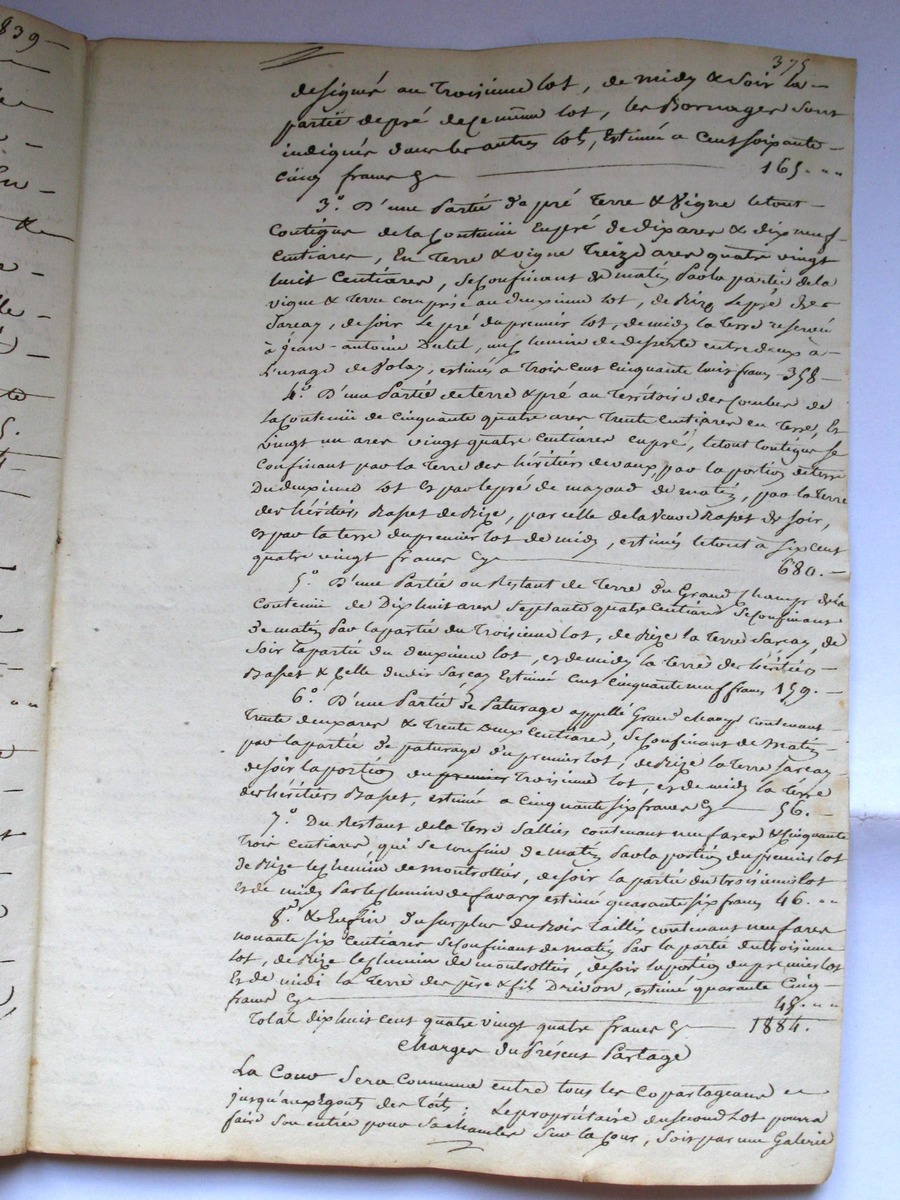 839 —
375
désignés au troisième lot, de midy & soir la —
partie de pré de ce même lot, les Bornages sont
indiqués dans les autres lots, Estimée a Cent soixante —
cinq francs — 165. " "
3.° D'une Partie de pré Terre & Vigne le tout —
Contigue de la Contenüe En pré de dix ares & dix neuf
Centiares, En Terre & vigne Treize ares quatre vingt
huit Centiares, se Confinant de matin Par la partie de la
vigne & Terre comprise au deuxième lot, de Bize Le pré de
Sarcay, de soir Le pré du premier lot, de midy la Terre reservée
à jean-antoine Dutel, un chemin de desserte entre deux à —
L'usage de Volay, estimés a Trois cent cinquante huit francs — 358 —
4.° D'une Partie de terre & pré au Territoire des Combes de
la Contenüe de Cinquante quatre ares Trente Centiares en Terre, Et
Vingt un ares vingt quatre Centiares en pré, le tout Contigue se
Confinant par la Terre des héritiers devaux, par la portion de terre
Du deuxième lot Et par le pré de mayoud de matin, par la Terre
des héritiers Rapet de Bize, par celle de la Veuve Rapet de soir,
et par la terre du premier lot de midy, estimés le tout à six cent
quatre vingt francs — 680. —
5.° D'une Partie ou Restant de Terre du Grand Champ de la
Contenüe de Dix huit ares Septante quatre Centiares se Confinant
de matin Par la partie du Troisième lot, de Bize la Terre Sarcay, de
soir la partie du deuxième lot, et de midy la Terre des héritiers —
Rapet & Celle dudit Sarcay Estimée Cent cinquante neuf francs 159. —
6.° D'une Partie de Paturage appellé Grand champ contenant
Trente deux ares & Trente deux Centiares, se Confinant de Matin —
par la partie de paturage du premier lot, de Bize la Terre Sarcay —
de soir la portion du premier Troisième lot, et de midy la Terre
des héritiers Rapet, estimée a Cinquante six francs — 56. —
7.° Du Restant de la Terre Sallies contenant neuf ares & Cinquante
Trois Centiares qui se confine de matin Par la portion du premier lot
de Bize le chemin de montrottier, de soir la partie du troisième lot
Et de midy Par le chemin de favary estimé quarante six francs 46. " "
8.° & Enfin du surplus du Bois Taillis contenant neuf ares
nonante six Centiares se Confinant de matin Par la partie du troisième
lot, de Bize le chemin de montrottier, de soir la portion du premier lot
Et de midi la Terre des père & fils Drivon, estimé quarante Cinq —
francs — 45. " "
Total dix huit cent quatre vingt quatre francs — 1884. —
Charges du Présent Partage
La Cour Sera Commune entre tous les Copartageans en
jusqu'aux Egouts des Toits ; Le propriétaire du second lot pourra
faire son entrée pour sa chambre sur la Cour, soit par une Galerie